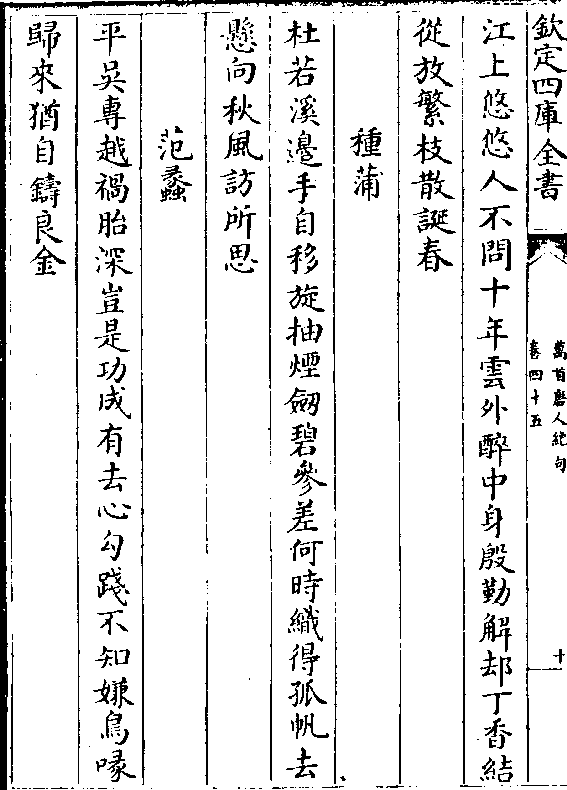 欽定四庫全書
萬首唐人絶句
卷四十五
十
江上悠悠人不問十年雲外醉中身殷勤解却丁香結
從放繁枝散誕春
種蒲
杜若溪邉手自移旋抽煙劒碧參差何時織得孤帆去
懸向秋風訪所思
范蠡
平吳專越禍胎深豈是功成有去心勾踐不知嫌鳥喙
歸來猶自鑄良金